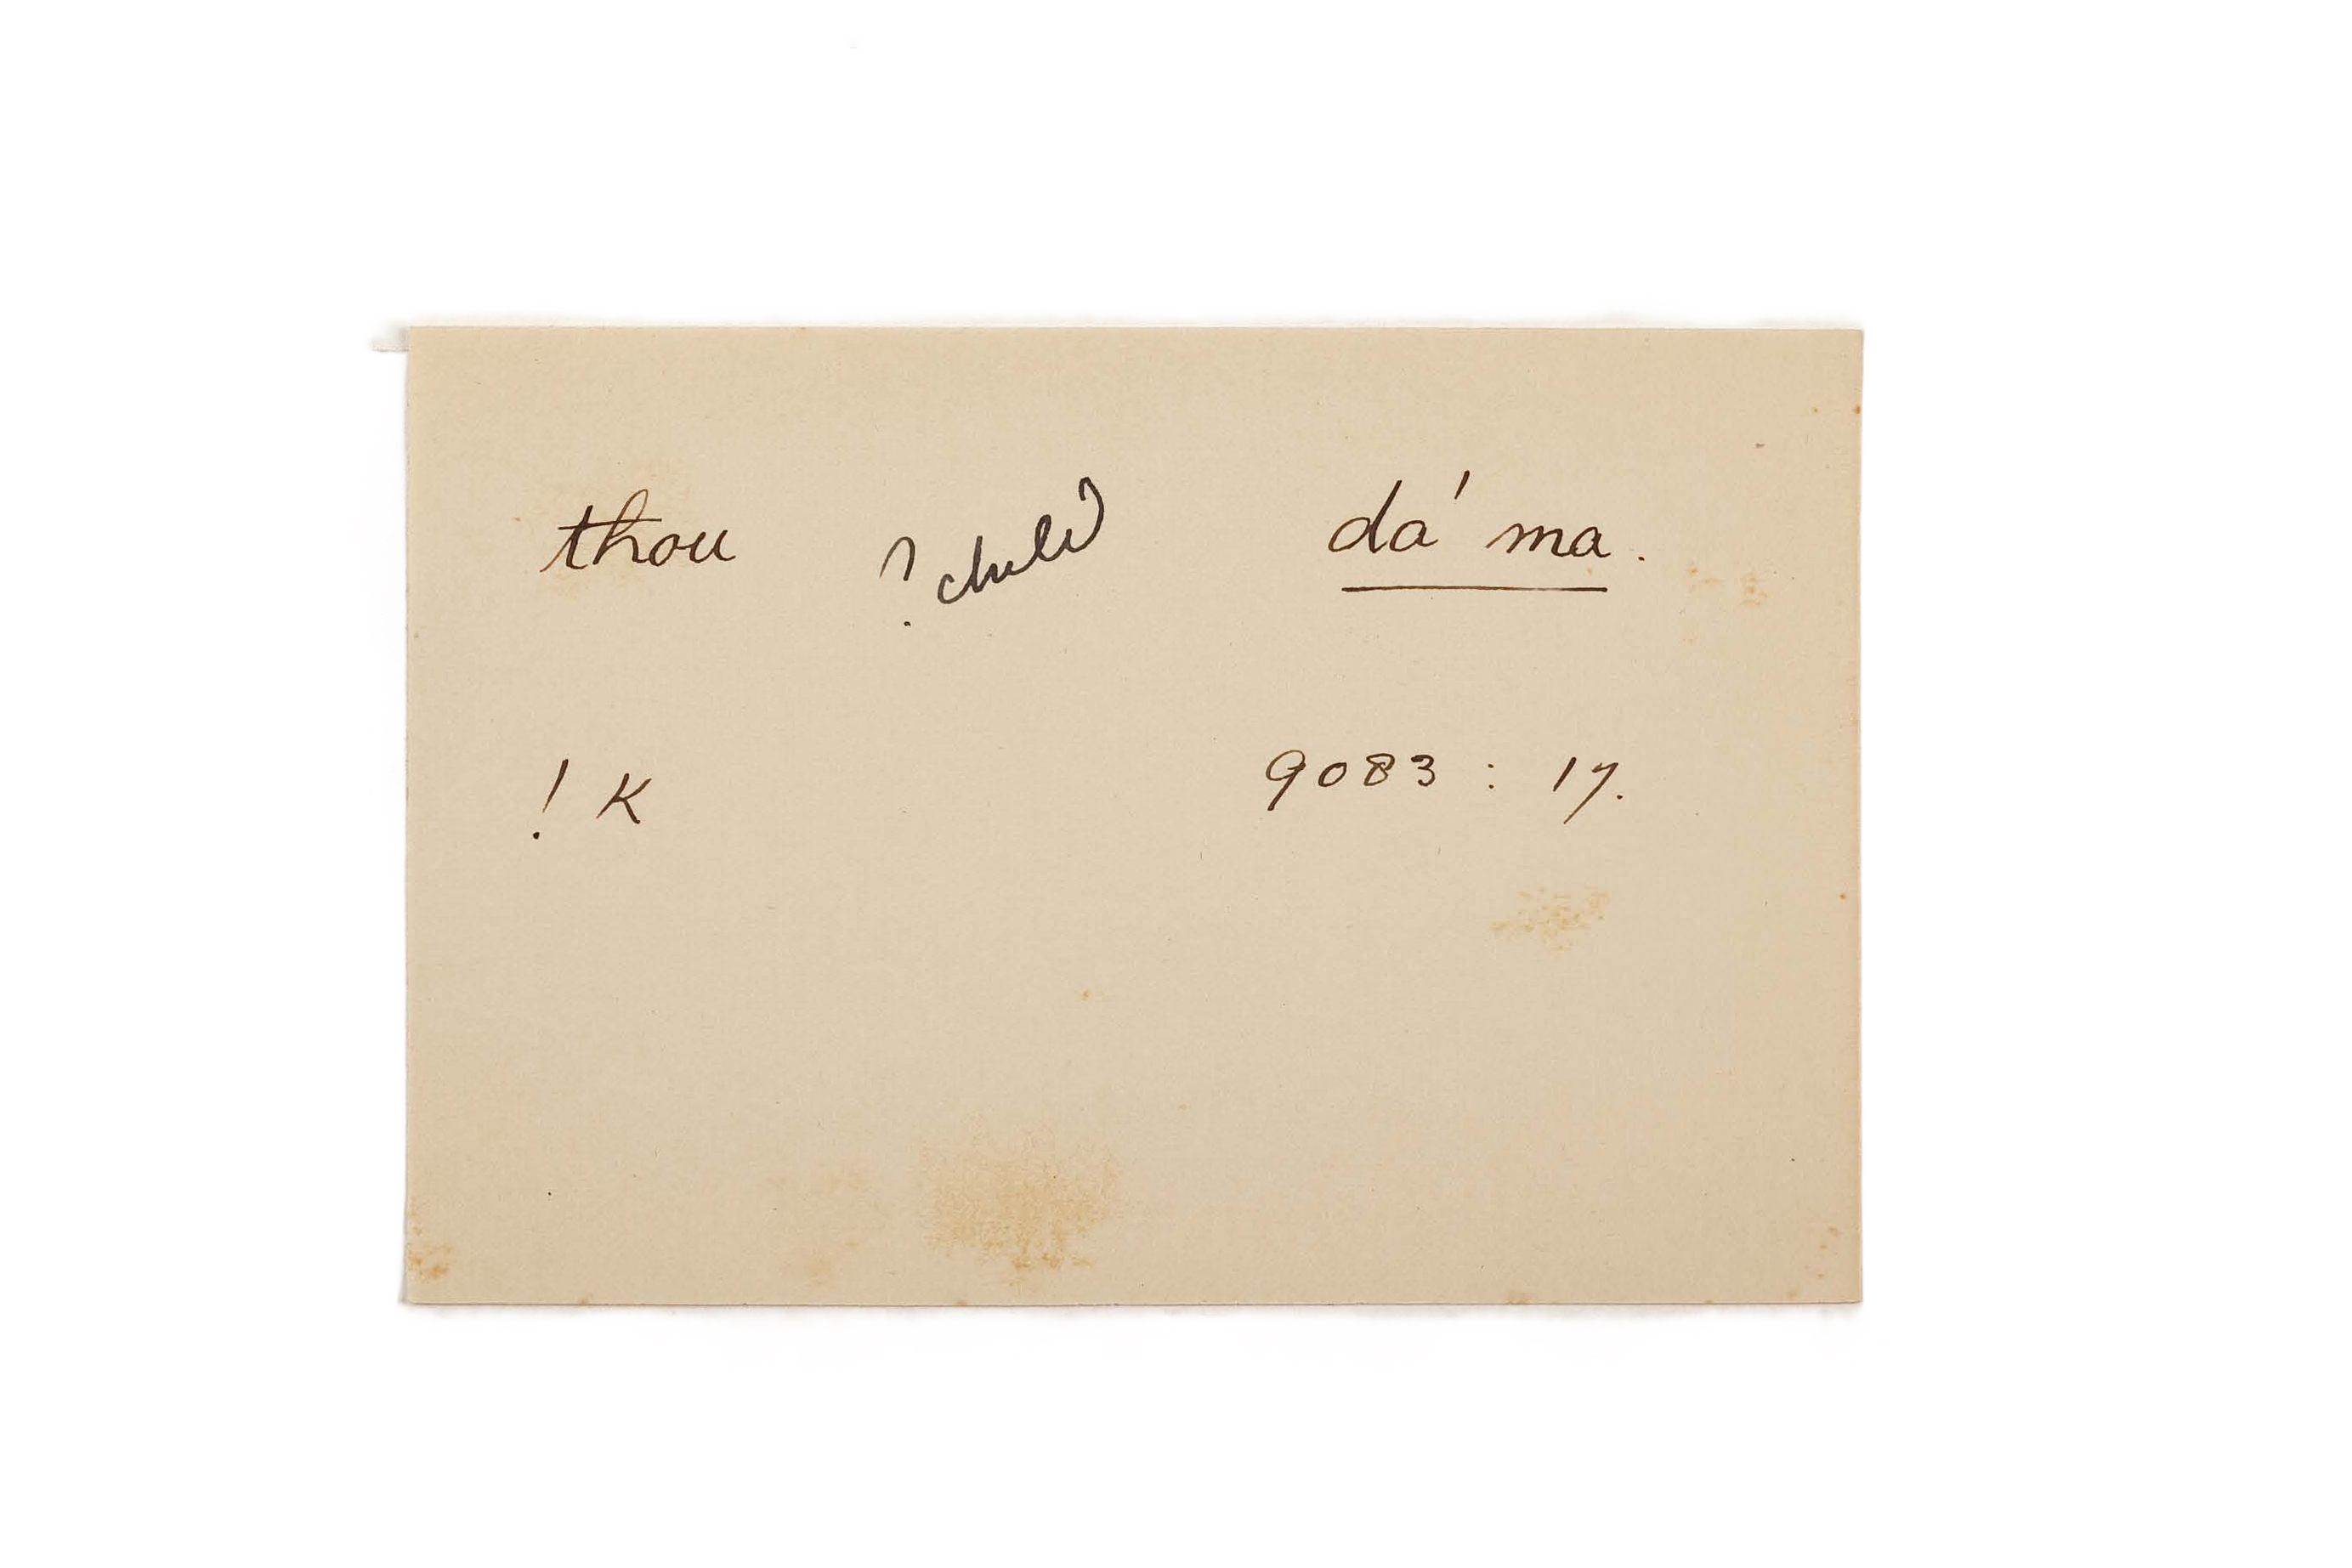 thou ? child dá ma.
! K 9083 : 17.